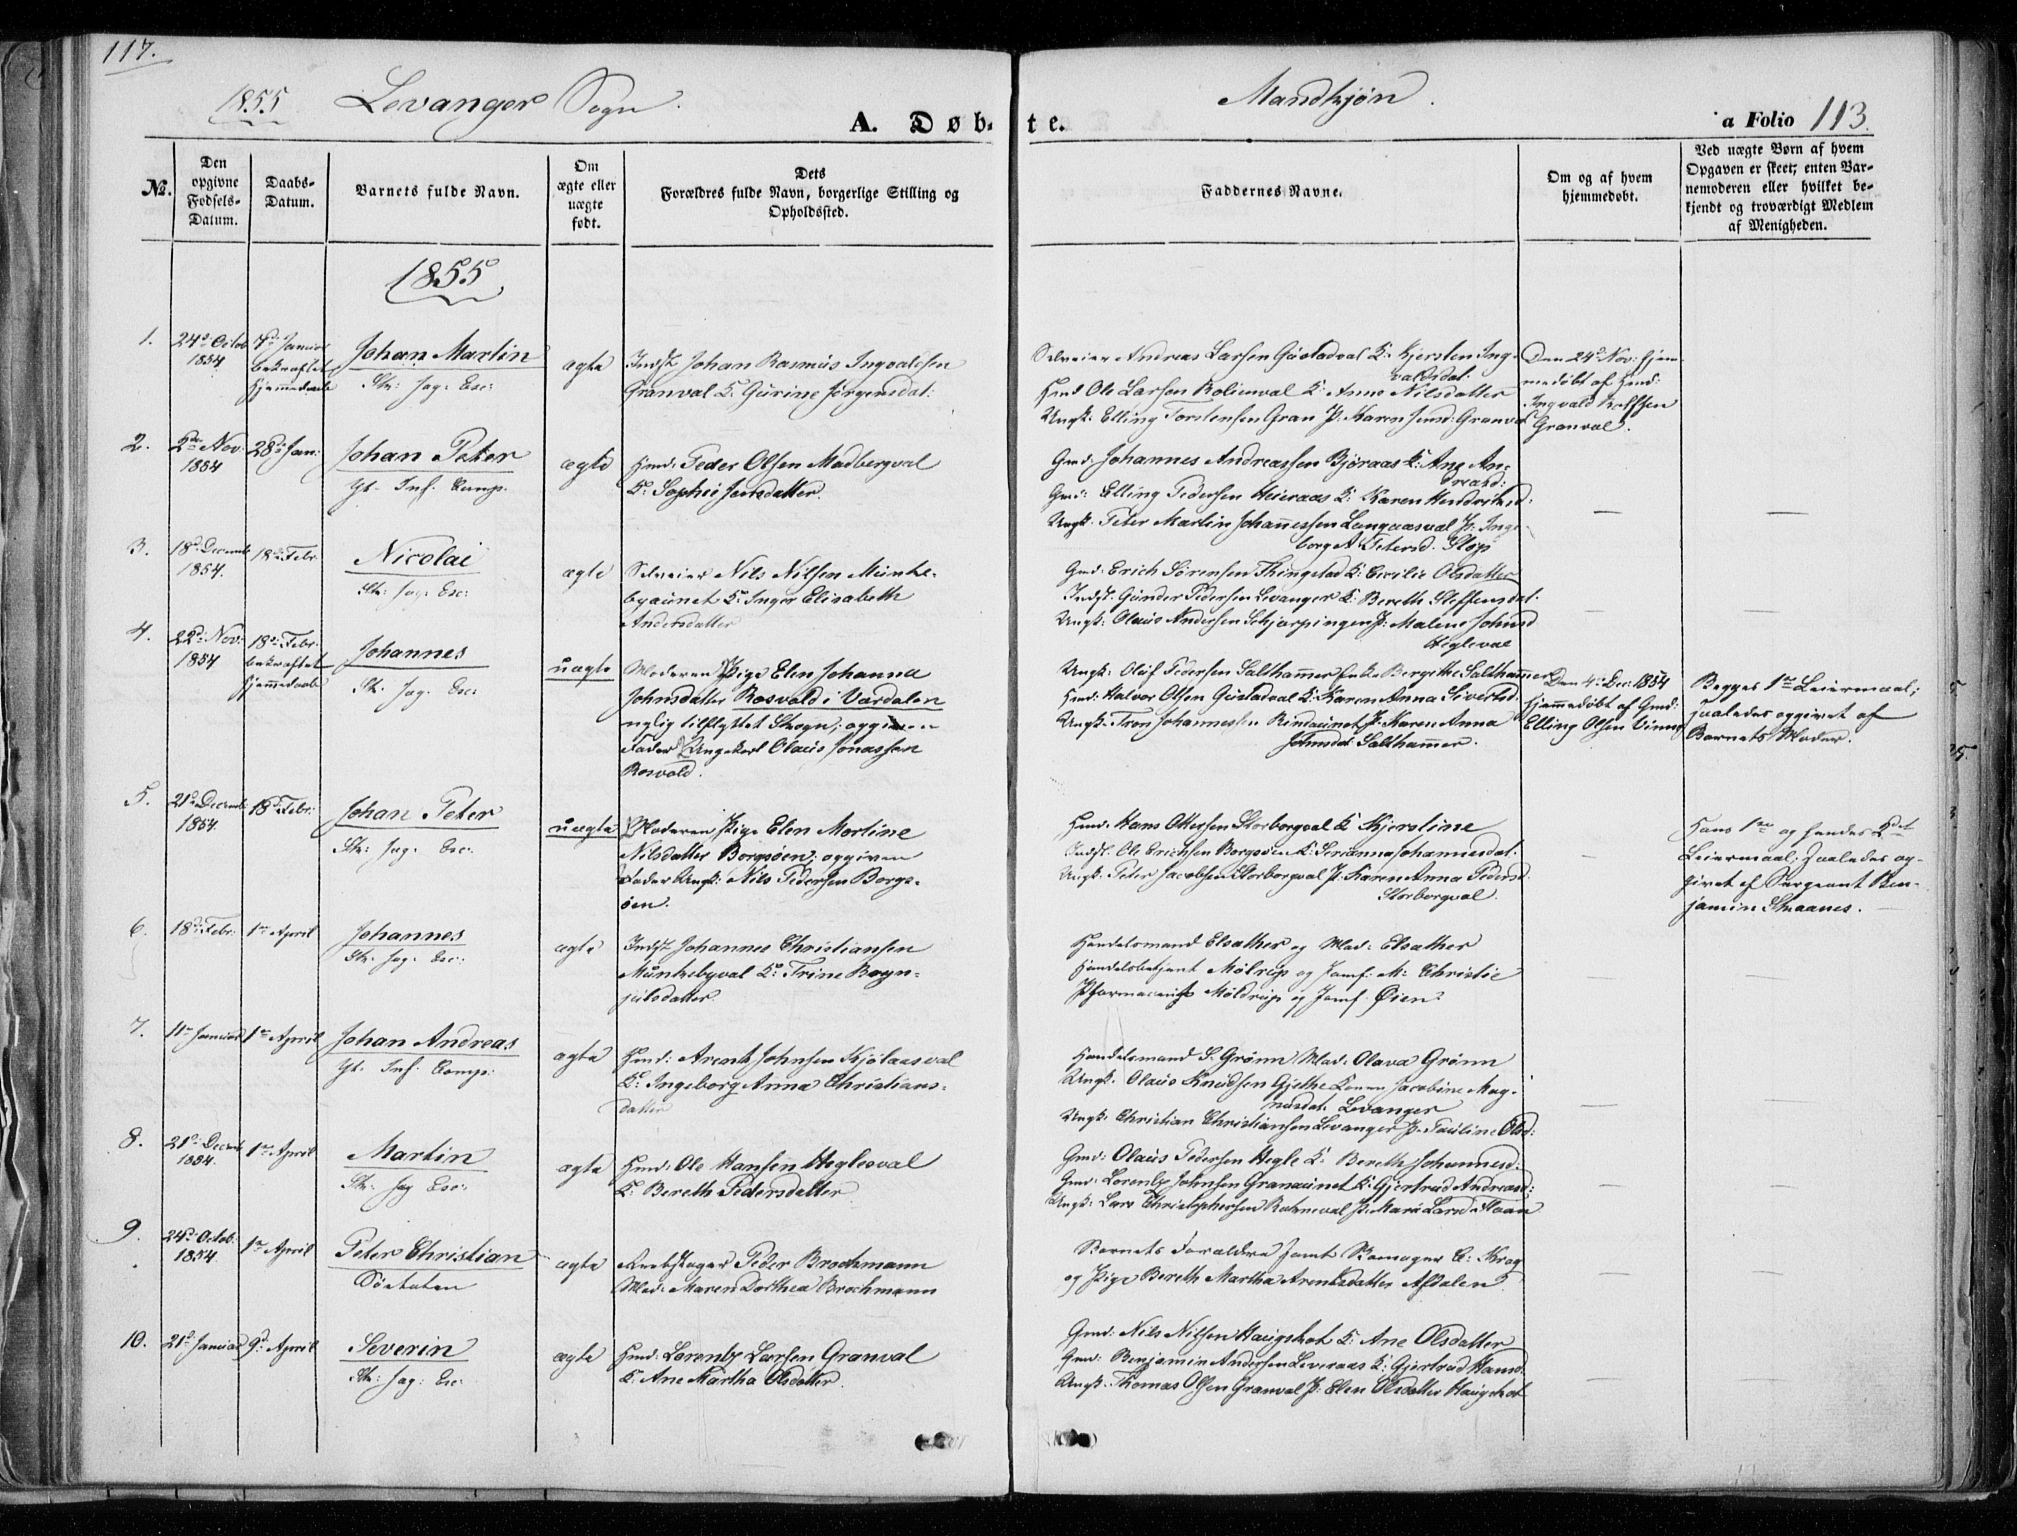 117.
1855 Levanger Sogn.
Mandkjøn.
A. Døb-
te.
a Folio 113.
No.
Den
opgivne
Fødsels-
Datum.
Daabs-
Datum.
Barnets fulde Navn.
Om
ægte eller
uægte
født.
Dets
Forældres fulde Navn, borgerlige Stilling og
Opholdssted.
Faddernes Navne.
Om og af hvem
hjemmedøbt.
Ved uægte Børn af hvem
Opgaven er skeet, enten Bar-
nemoderen eller hvilket be-
kjendt og troværdigt Medlem
af Menigheden.
1855
1.
24de Octob
1854
7de Januar
bekræftet
hjemmedaab
Johan Martin
Str: Jæg: Esc:
ægte
Indst Johan Rasmus Ingvaldsen
Granval K: Gurine Jörgensdat:
Selveier Andreas Larsen Gustadval K: Kjersten Ing-
valdsdat.
Hmd Ole Larsen Anne Nilsdatter
Ungk: Elling Torstensen Gran P: Karen Granval
Den 24de Nov: hjem-
medöbt af Hmd:
Ingvald
Granval.
2.
2den Nov:
1854
28de Jan:
Johan Peter
Yt. Inf. Comp.
ægte
Hmd: Peder Olsen Madbergval
K: Sophie Jensdatter.
Gmd: Johannes Andreassen Björaas K: Ane An-
dreasd:
Gmd: Elling Pedersen Heieraas K: Karen Hendriksd:
Ungk. Peter Martin Johannessen Langaasval P: Inge-
borg A. Petersd. Slop
3.
18de Decemb
1854.
18de Febr.
Nicolai
Str: Jæg: Esc:
ægte
Selveier Nils Nilsen Munke-
byaunet K: Inger Elisabeth
Andersdatter
Gmd: Erich Sörensen Thingstad K: Cecilie Olsdatter
Indst: Gunder Pedersen Levanger K: Bereth Steffensdat.
Ungk: Olaus Andersen Schjerpingen P: Malene Johnsd
Hegleval
4.
22de Nov:
1854
18de Febr.
bekræftet
hjemmedaab
Johannes
Str: Jæg: Esc:
uægte
Moderen Pige Elen Johanna
Johnsdatter Rosvold i Værdalen
nylig tilflyttet Skogn; opgiven
Fader Ungekarl Olaus Jonassen
Rosvold.
Ungk: Oluf Pedersen Salthammer Enke Bergithe Salthammer
Hmd: Halvor Olsen Gustadval K: Karen Anna Sivertsd:
Ungk: Tron Johannessen Rindaunet P: Karen Anna
Johnsdat: Salthammer.
Den 4de Dec: 1854
hjemmedöbt af Gmd:
Elling Olsen Vinne
Begges 1ste Leiermaal;
saaledes opgivet af
Barnets Moder.
5.
21de Decemb
1854.
18de Febr:
Johan Peter
Str: Jæg: Esc:
uægte
Moderen Pige Elen Martine
Nilsdatter Borgsöen; opgiven
Fader Ungk: Nils Pedersen Borgs-
öen.
Hmd: Hans Ottersen Storborgval K: Kjerstine
Indst: Ole Erichsen Borgsöen K: Serianna Johannesdat.
Ungk. Peter Jacobsen Storborgval P: Karen Anna Pedersd.
Storborgval.
Hans 1ste og hendes 2det
Leiermaal; saaledes op-
givet af Sergeant Ben-
jamin Smaanes.
6.
18de Febr.
1ste April
Johannes
Str: Jæg: Esc:
ægte
Indst Johannes Christiansen
Munkebyval K: Trine Bryn-
julsdatter.
Handelsmand Elsæther og Mad: Elsæther
Handelsbetjent Möldrup og Jomf: M: Christie
Pharmaceut Möldrup og Jomf. Øien.
7.
11te Januar
1ste April
Johan Andreas
Yt. Inf. Comp:
ægte
Hmd: Arent Johnsen Kjölaasval
K: Ingeborg Anna Christians-
datter
Handelsmand S: Grönn Mad: Olava Grönn
Ungk. Olaus Knudsen Gjethe Konen Jacobine Mag-
nusdat. Levanger
Ungk: Christian Christiansen Levanger P. Pauline Olsd:
8.
21de Decemb
1854.
1ste April
Martin
Str: Jæg Esc:
ægte
Hmd: Ole Hansen Heglesval
K: Bereth Pedersdatter
Gmd: Olaus Pedersen Hegle K: Bereth Johannesd:
Gmd: Lorents Johnsen Granaunet K: Gjertrud Andreasd:
Ungk: Lars Christophersen P: Larsd: Moan
9.
24de Octob.
1854
1ste April
Peter Christian
Söetaten
ægte
Peder Brochmann
Mad: Maren Dorthea Brochmann
Barnets Forældre samt C: Krog
og Pige Bereth Martha Arentsdatter Afdalen
10.
21de Januar
9de April
Severin
Str: Jæg: Esc:
ægte
Hmd: Lorents Larsen Granval
K: Ane Martha Olsdatter.
Gmd: Nils Nilsen Haugskot K: Ane Olsdatter
Gmd: Benjamin Andersen Leveraas K: Gjertrud Hansd:
Ungk. Thomas Olsen Granval P: Elen Olsdatter Haugskot